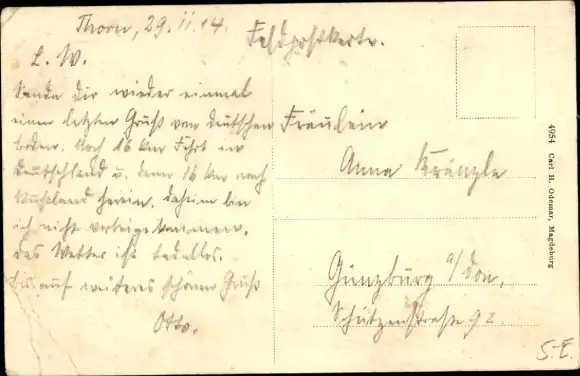 Thorn, 29.11.14.
Feldpostkarte.
L. W.
Sende dir wieder einmal
einen letzten Gruß von deutschen
Boden. Noch 16 km Fahrt in
Deutschland u. dann 16 km nach
Rußland herein. Daheim bin
ich nicht vorbeigekommen.
Das Wetter ist tadellos.
Bis auf weiteres schönen Gruß
Otto.
Fräulein
Anna Kränzle
Günzburg a/Don.
Schützenstraße 92.
4954 Carl H. Odemar, Magdeburg
S.E.